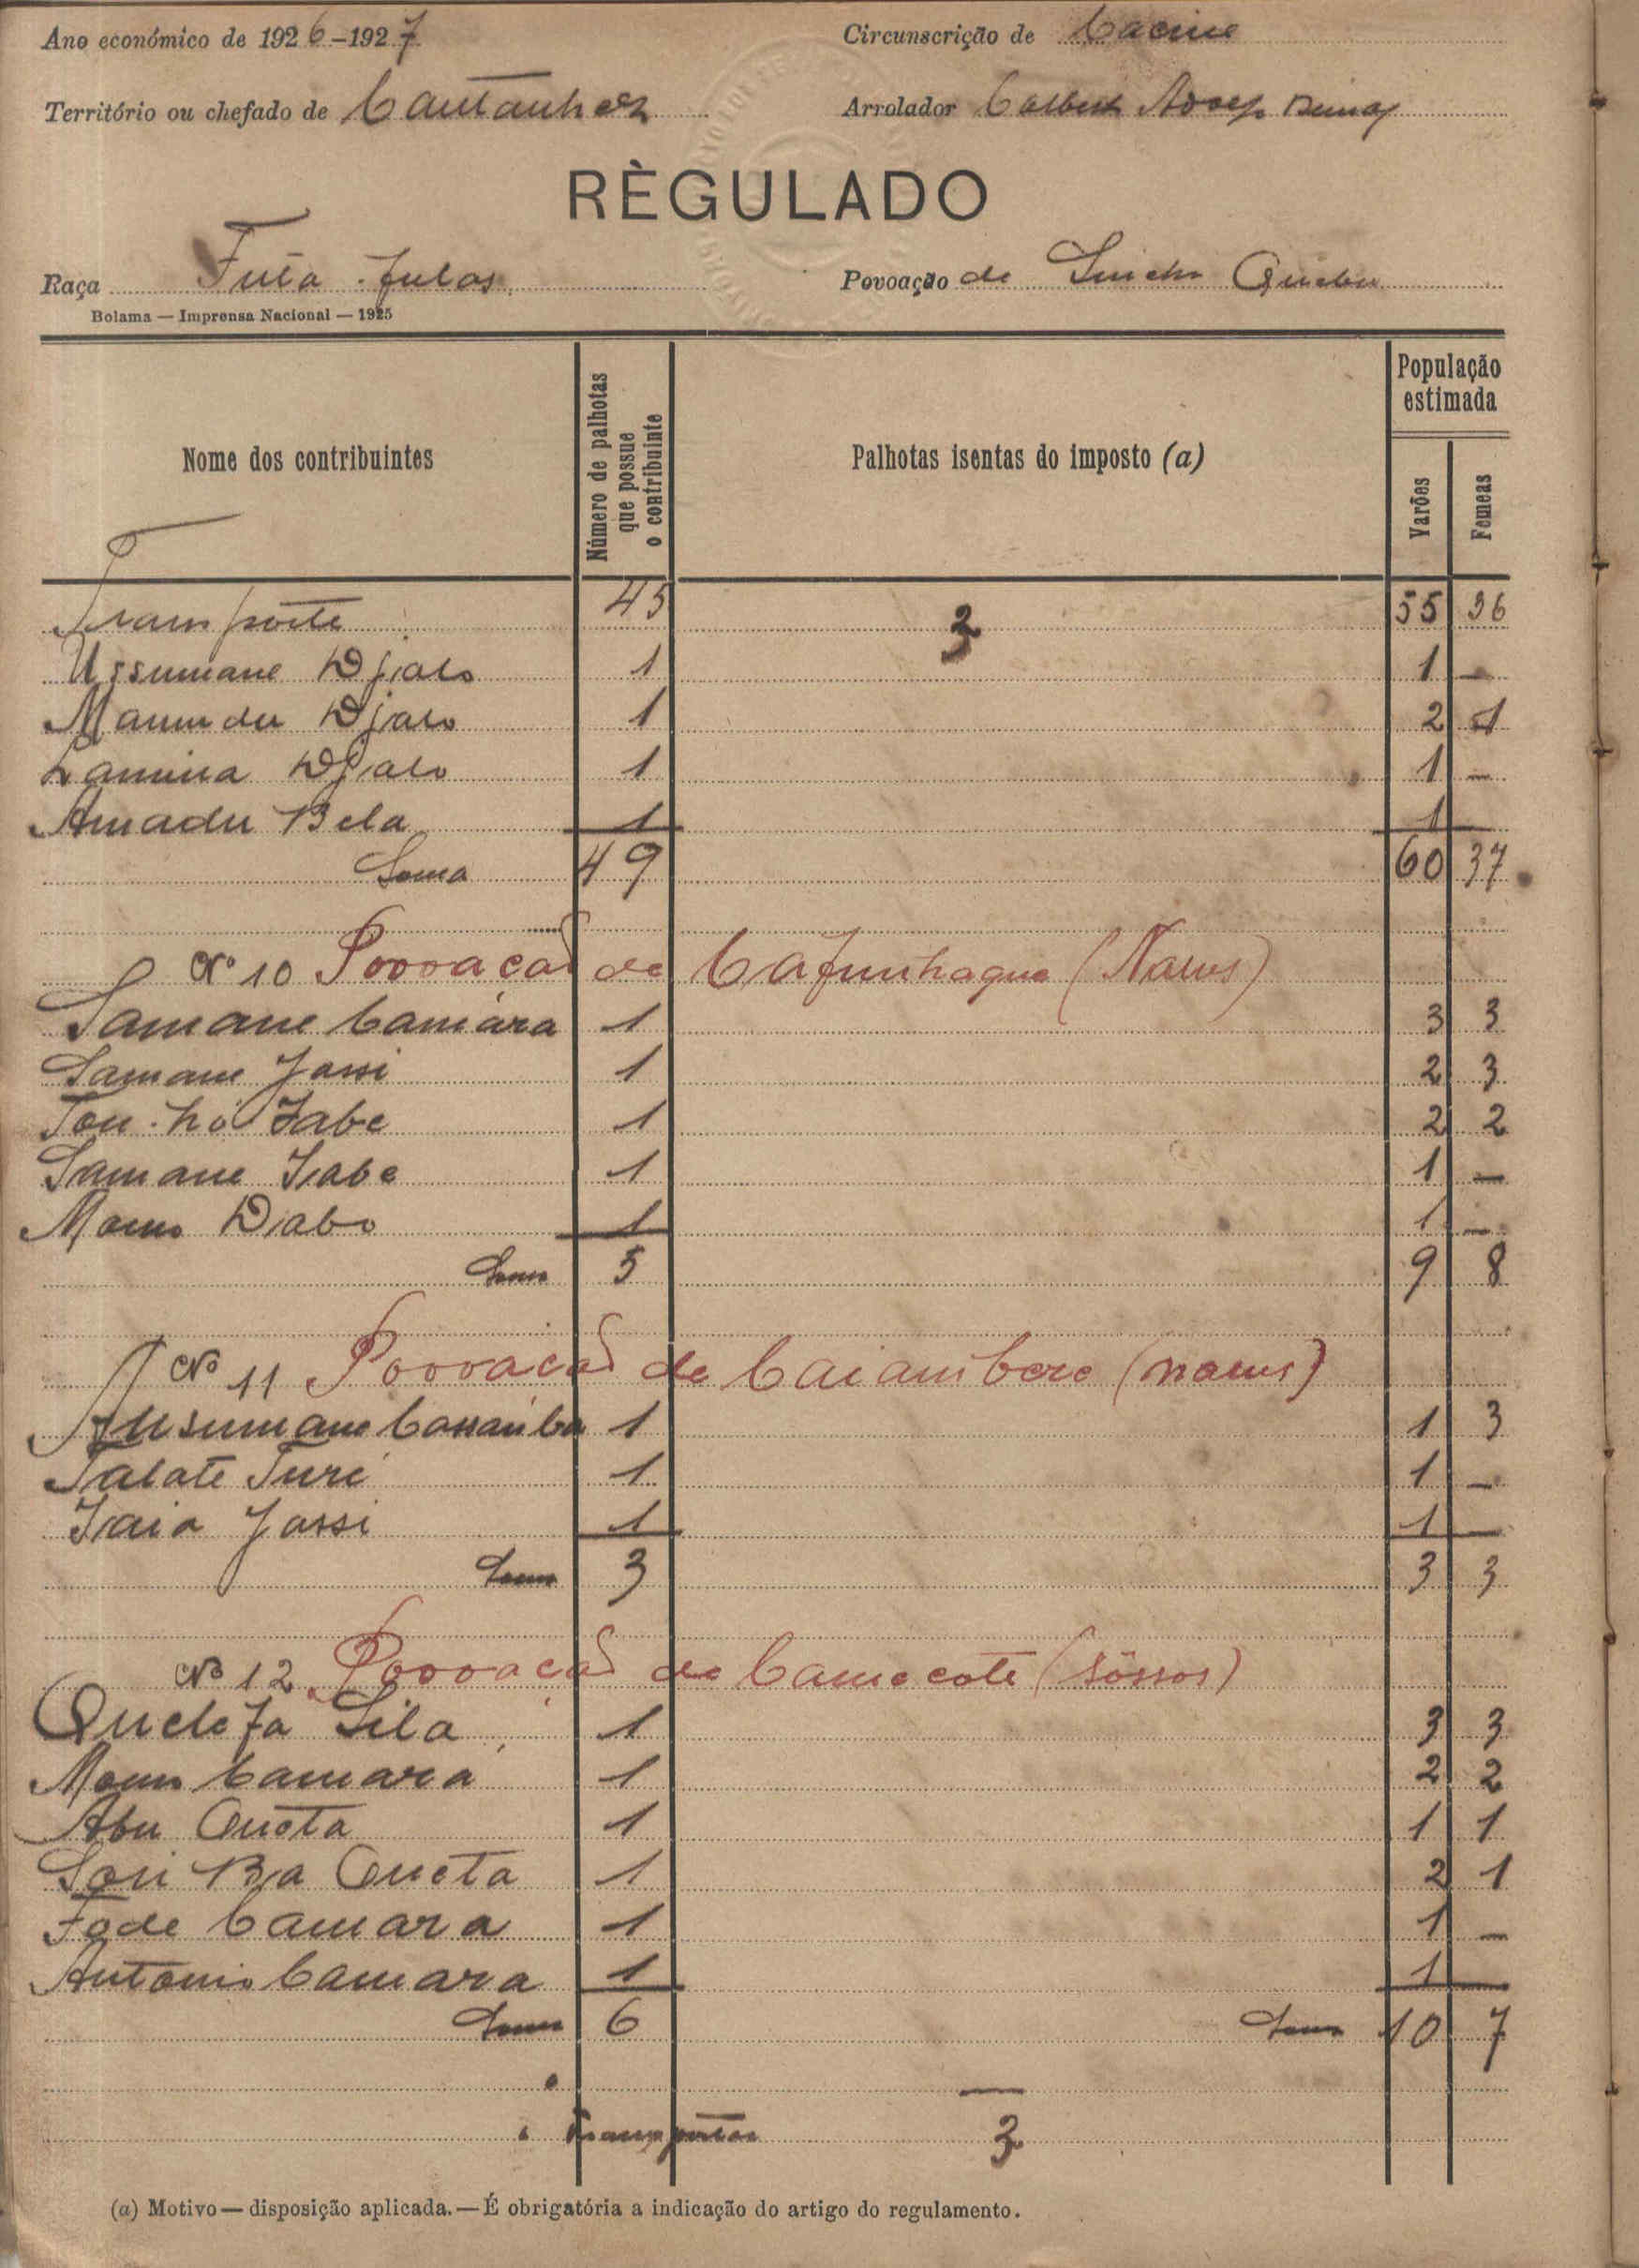 Ano económico de 1926-1927
Circunscrição de Cacine
Território ou chefado de Cantanhez
Arrolador
RÈGULADO
Raça Futa-fulas
Povoação de
Bolama — Imprensa Nacional — 1925
Nome dos contribuintes
Número de palhotas que possue o contribuinte
Palhotas isentas do imposto (a)
População estimada
Varões
Femeas
Transporte 45 3 55 36
Ussumane Djalo 1 1 —
Mamudu Djalo 1 2 1
Lamina Djalo 1 1 —
Amadu Bela 1 1 —
Soma 49 60 37
Nº 10 Povoação de Cafunhaque (Nalus)
Samane Camára 1 3 3
Samane Jassi 1 2 3
1 2 2
Samane 1 1 —
Dabo 1 1 —
Soma 5 9 8
Nº 11 Povoação de Caiambore (nalus)
1 1 3
Talate Turé 1 1 —
Iaia Jassi 1 1 —
Soma 3 3 3
Nº 12 Povoação de Camecote (sôssos)
Quelefa Sila 1 3 3
Camara 1 2 2
Abu Queta 1 1 1
Sori Ba Queta 1 2 1
Fode Camara 1 1 —
Antonio Camara 1 1 —
Soma 6 Soma 10 7
—
Transportar 3
(a) Motivo — disposição aplicada. — É obrigatória a indicação do artigo do regulamento.